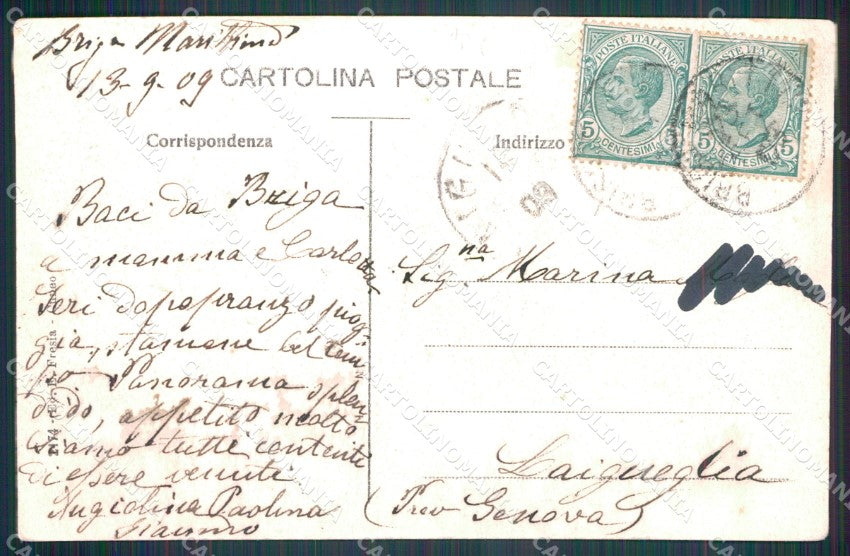 Briga Marittima
13-9-09
CARTOLINA POSTALE
Corrispondenza
Indirizzo
POSTE ITALIANE
5 CENTESIMI 5
POSTE ITALIANE
5 CENTESIMI 5
Baci da Briga
a mamma e Carlotta
Ieri dopopranzo piog
gia, stamane bel tem
po. Panorama splen
dido, appetito molto
siamo tutti contenti
di essere venuti
Angiolina Paolina
Giacomo
Sig.na Marina
Laigueglia
(Prov Genova)
Fresia
CARTOLINOMANIA